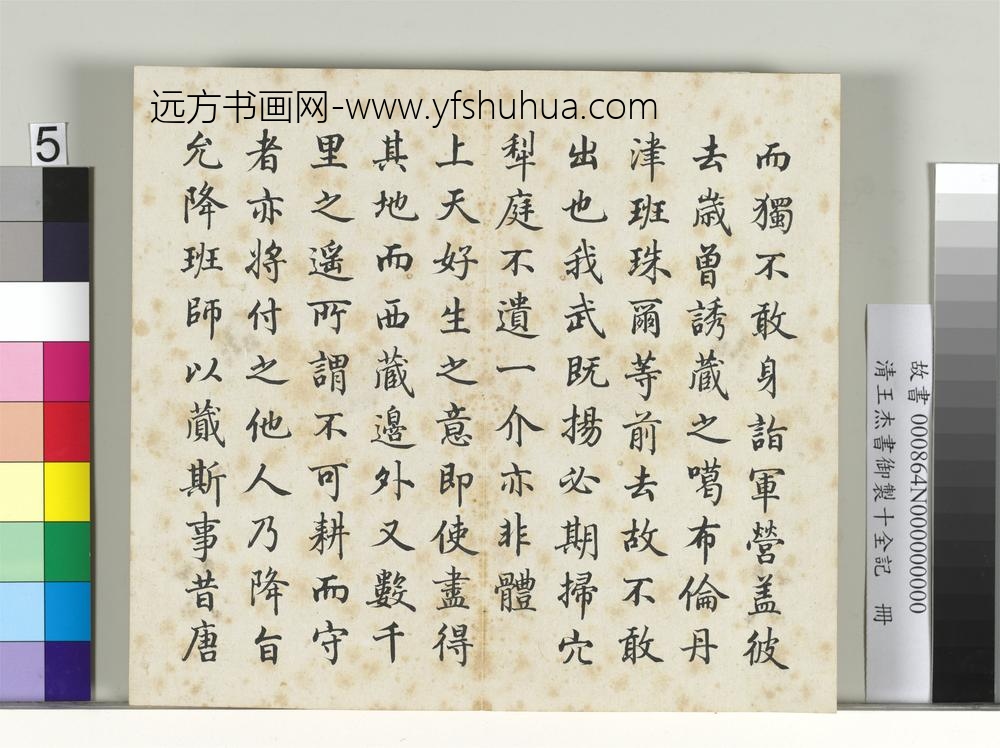 远方书画网-www.yfshuhua.com
5
而獨不敢身詣軍營盖彼
去嵗曽誘藏之噶布倫丹
津班珠爾等前去故不敢
出也我武既揚必期掃穴
犁庭不遺一介亦非體
上天好生之意即使盡得
其地而西藏邊外又數千
里之遥所謂不可耕而守
者亦将付之他人乃降㫖
允降班師以蕆斯事昔唐
故書 000864N000000000
清王杰書御製十全記 冊